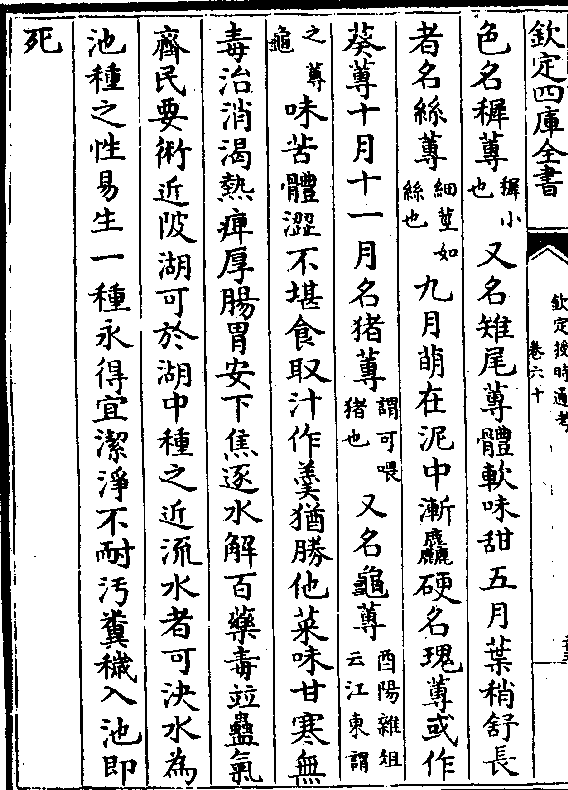 欽定四庫全書
欽定授時通考
卷六十
色名穉蓴穉小也又名雉尾蓴體軟味甜五月葉稍舒長
者名絲蓴細莖如絲也九月萌在泥中漸麤硬名瑰蓴或作
葵蓴十月十一月名猪蓴謂可喂猪也又名龜蓴酉陽雜俎云江東謂
之蓴龜味苦體澀不堪食取汁作羮猶勝他菜味甘寒無
毒治消渴熱痺厚腸胃安下焦逐水解百藥毒竝蠱氣
齊民要術近陂湖可於湖中種之近流水者可決水為
池種之性易生一種永得宜潔淨不耐汚糞穢入池即
死